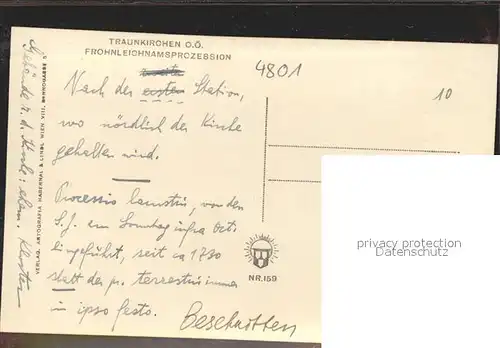 TRAUNKIRCHEN O.Ö.
FROHNLEICHNAMSPROZESSION
4801
10
Nach der ersten Station,
wo nördlich der Kirche
gehalten wird.
Processio lacustris, von den
S.J. am Sonntag infra Oct.
eingeführt, seit ca 1730
statt der p. terrestris immer
in ipso festo.
Beschnitten
Gebäude r. d. Kirche: ehem. Kloster
VERLAG, ARTOGRAFIA HABERNAL & LINDL, WIEN VIII.
NR.159
privacy protection
Datenschutz